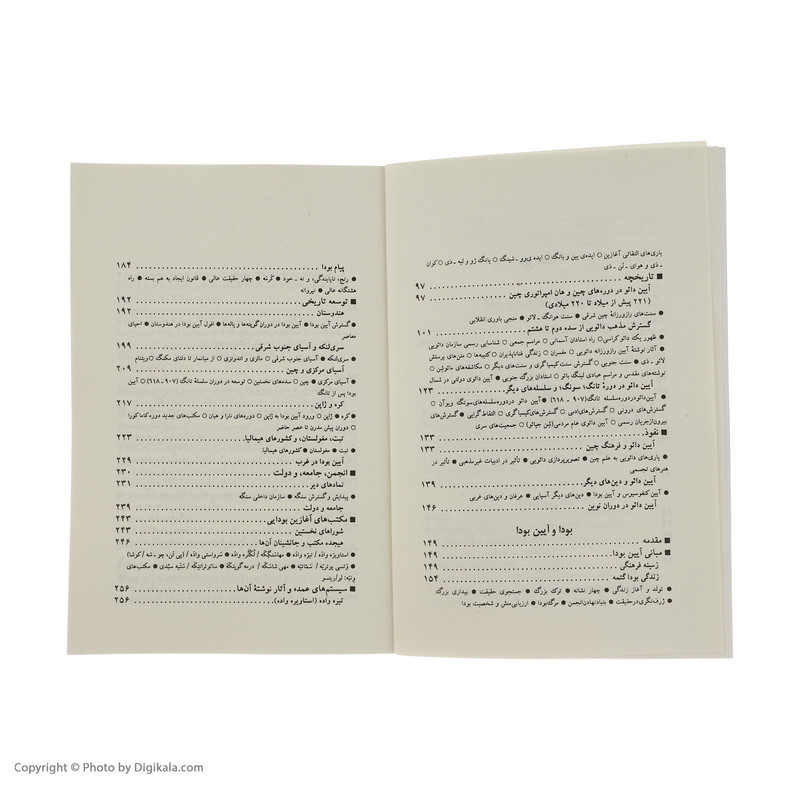 یاری‌های التقاتی آغازین ○ ایده‌ی یین و یانگ ○ ایده ی وو ـ شینگ ○ یانگ ژو و لیه ـ ذی ○ کوان
ـ ذی و هوای ـ نن ـ ذی
■ تاریخچه ۹۷
آیین دائو در دوره‌های چین و هان امپراتوری چین ۹۷
(۲۲۱ پیش از میلاد تا ۲۲۰ میلادی)
● سنت‌های رازورزانهٔ چین شرقی ● سنت هوانگ ـ لائو ● منجی باوری انقلابی
گسترش مذهب دائویی از سده دوم تا هشتم ۱۰۱
● ظهور یک دائو کراسی ○ راه استادان آسمانی ○ مراسم جمعی ○ شناسایی رسمی سازمان دائویی
● آثار نوشتهٔ آیین رازورزانه دائویی ○ مفسران ○ زندگی فناناپذیران ○ کتیبه‌ها ○ متن‌های پرستش
لائو ـ ذی ● سنت جنوبی ○ گسترش کیمیاگری و سنت‌های دیگر ○ مکاشفه‌های مائوشن ○
نوشته‌های مقدس و مراسم عبادی لینگ بائو ○ استادان بزرگ جنوبی ● آیین دائویی دولتی در شمال
آیین دائو در دورهٔ تانگ؛ سونگ؛ و سلسله‌های دیگر ۱۲۳
● آیین‌دائودردوره‌سلسله‌ی تانگ(۹۰۷ - ۶۱۸) ● آیین دائو دردوره‌سلسله‌های‌سونگ ویوآن ○
گسترش‌های درونی ○ گسترش‌های‌ادبی ○ گسترش‌های‌کیمیاگری ○ التقاط‌گرایی ● گسترش‌های
بیرون‌ازجریان رسمی ○ آیین دائوی عام مردمی (لین جیائو) ○ جمعیت‌های سری
■ نفوذ ۱۳۳
آیین دائو و فرهنگ چین ۱۳۳
● یاری‌های دائویی به علم چین ● تصویرپردازی دائویی ● تأثیر در ادبیات غیرمذهبی ● تأثیر در
هنرهای تجسمی
آیین دائو و دین‌های دیگر ۱۳۹
● آیین کنفوسیوس و آیین بودا ● دین‌های دیگر آسیایی ● عرفان و دین‌های غربی
آیین دائو در دوران نوین ۱۴۶
بودا و آیین بودا
■ مقدمه ۱۴۹
■ مبانی آیین بودا ۱۴۹
زمینه فرهنگی ۱۴۹
زندگی بودا گئتمه ۱۵۴
● تولد و آغاز زندگی ● چهار نشانه ● ترک بزرگ ● جستجوی حقیقت ● بیداری بزرگ
● ژرف‌نگری‌درحقیقت ● بنیادنهادن‌انجمن ● مرگ‌بودا ● ارزیابی‌منش و شخصیت بودا
پیام بودا ۱۸۴
● رنج، ناپایندگی، و نه ـ خود ● کَرْمَه ● چهار حقیقت عالی ● قانون ایجاد به هم بسته ● راه
هشتگانه عالی ● نیروانه
■ توسعه تاریخی ۱۹۲
هندوستان ۱۹۲
● گسترش آیین بودا ● آیین بودا در دوران گوپته‌ها و پاله‌ها ● افول آیین بودا در هندوستان ● احیای
معاصر
سری‌لنکه و آسیای جنوب شرقی ۱۹۹
● سری‌لنکه ● آسیای جنوب شرقی ○ مالزی و اندونزی ○ از میانمار تا دلتای مکنگ ○ ویتنام
آسیای مرکزی و چین ۲۰۹
● آسیای مرکزی ● چین ○ سده‌های نخستین ○ توسعه در دوران سلسلهٔ تانگ (۹۰۷-۶۱۸) ○ آیین
بودا پس از تانگ
کره و ژاپن ۲۱۷
● کره ● ژاپن ○ ورود آیین بودا به ژاپن ○ دوره‌های نارا و هیان ○ مکتب‌های جدید دوره کاماکورا
○ دوران پیش مدرن تا عصر حاضر
تبت، مغولستان، و کشورهای هیمالیا ۲۲۳
● تبت ● مغولستان ● کشورهای هیمالیا
آیین بودا در غرب ۲۲۹
■ انجمن، جامعه، و دولت ۲۳۰
نمادهای دیر ۲۳۱
● پیدایش و گسترش سنگه ● سازمان داخلی سنگه
جامعه و دولت ۲۳۹
■ مکتب‌های آغازین بودایی ۲۴۳
شوراهای نخستین ۲۴۳
هیجده مکتب و جانشینان آن‌ها ۲۴۶
■ سیستم‌های عمده و آثار نوشتهٔ آن‌ها ۲۵۶
تیره واده (استاویره واده) ۲۵۶
Copyright © Photo by Digikala.com